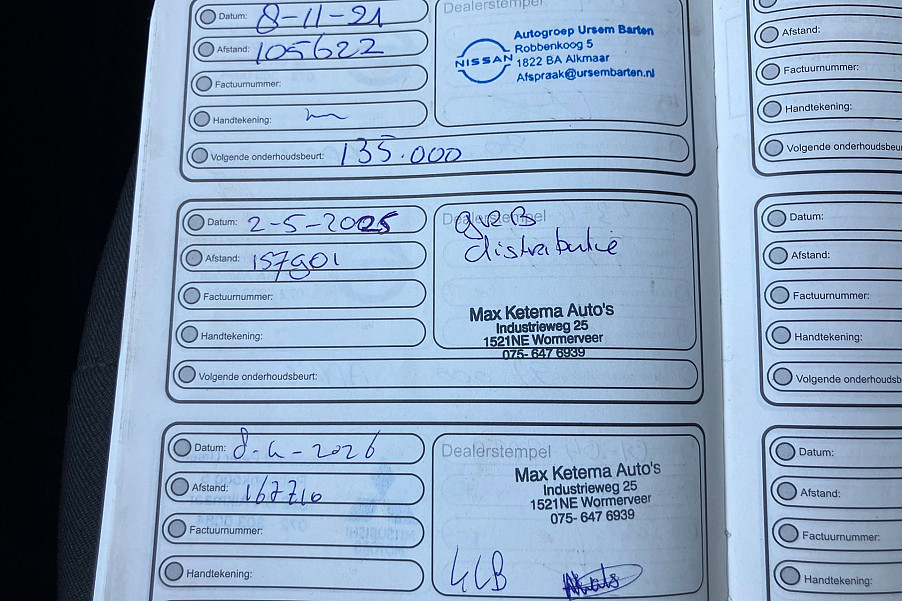 Datum: 8-11-21
Afstand: 105622
Factuurnummer:
Handtekening:
Volgende onderhoudsbeurt: 135.000
Dealerstempel
NISSAN
Autogroep Ursem Barten
Robbenkoog 5
1822 BA Alkmaar
Afspraak@ursembarten.nl
Datum: 2-5-2025
Afstand: 157901
Factuurnummer:
Handtekening:
Volgende onderhoudsbeurt:
Dealerstempel
distributie
Max Ketema Auto's
Industrieweg 25
1521NE Wormerveer
075- 647 6939
Datum: 8-4-2026
Afstand: 167710
Factuurnummer:
Handtekening:
Dealerstempel
Max Ketema Auto's
Industrieweg 25
1521NE Wormerveer
075- 647 6939
Afstand:
Factuurnummer:
Handtekening:
Volgende onderhoudsbeur
Datum:
Afstand:
Factuurnummer:
Handtekening:
Volgende onderhoudsb
Datum:
Afstand:
Factuurnummer:
Handtekening: